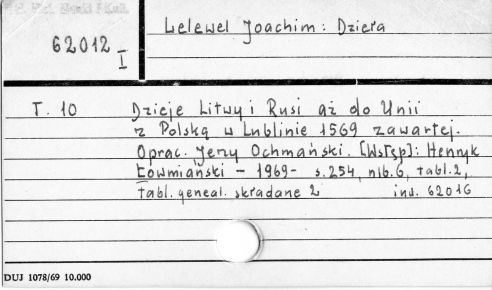 62012
I
Lelewel Joachim: Dzieła
T. 10 Dzieje Litwy i Rusi aż do Unii
z Polską w Lublinie 1569 zawartej.
Oprac. Jerzy Ochmański. [Wstęp]: Henryk
Łowmiański - 1969 - s. 254, nlb. 6, tabl. 2,
tabl. geneal. składane 2 inw. 62016
DUJ 1078/69 10.000